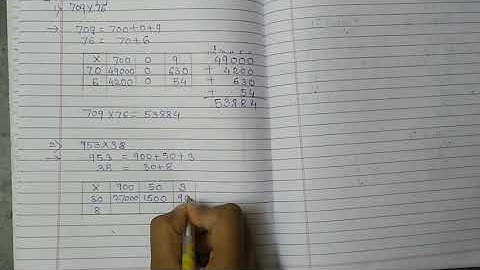 1) 709×76
→ 709 = 700+0+9
76 = 70+6
× 700 0 9
70 49000 0 630
6 4200 0 54
49000
+ 4200
+ 630
+ 54
53884
709×76 = 53884
2) 953×38
→ 953 = 900+50+3
38 = 30+8
× 900 50 3
30 27000 1500 90
8